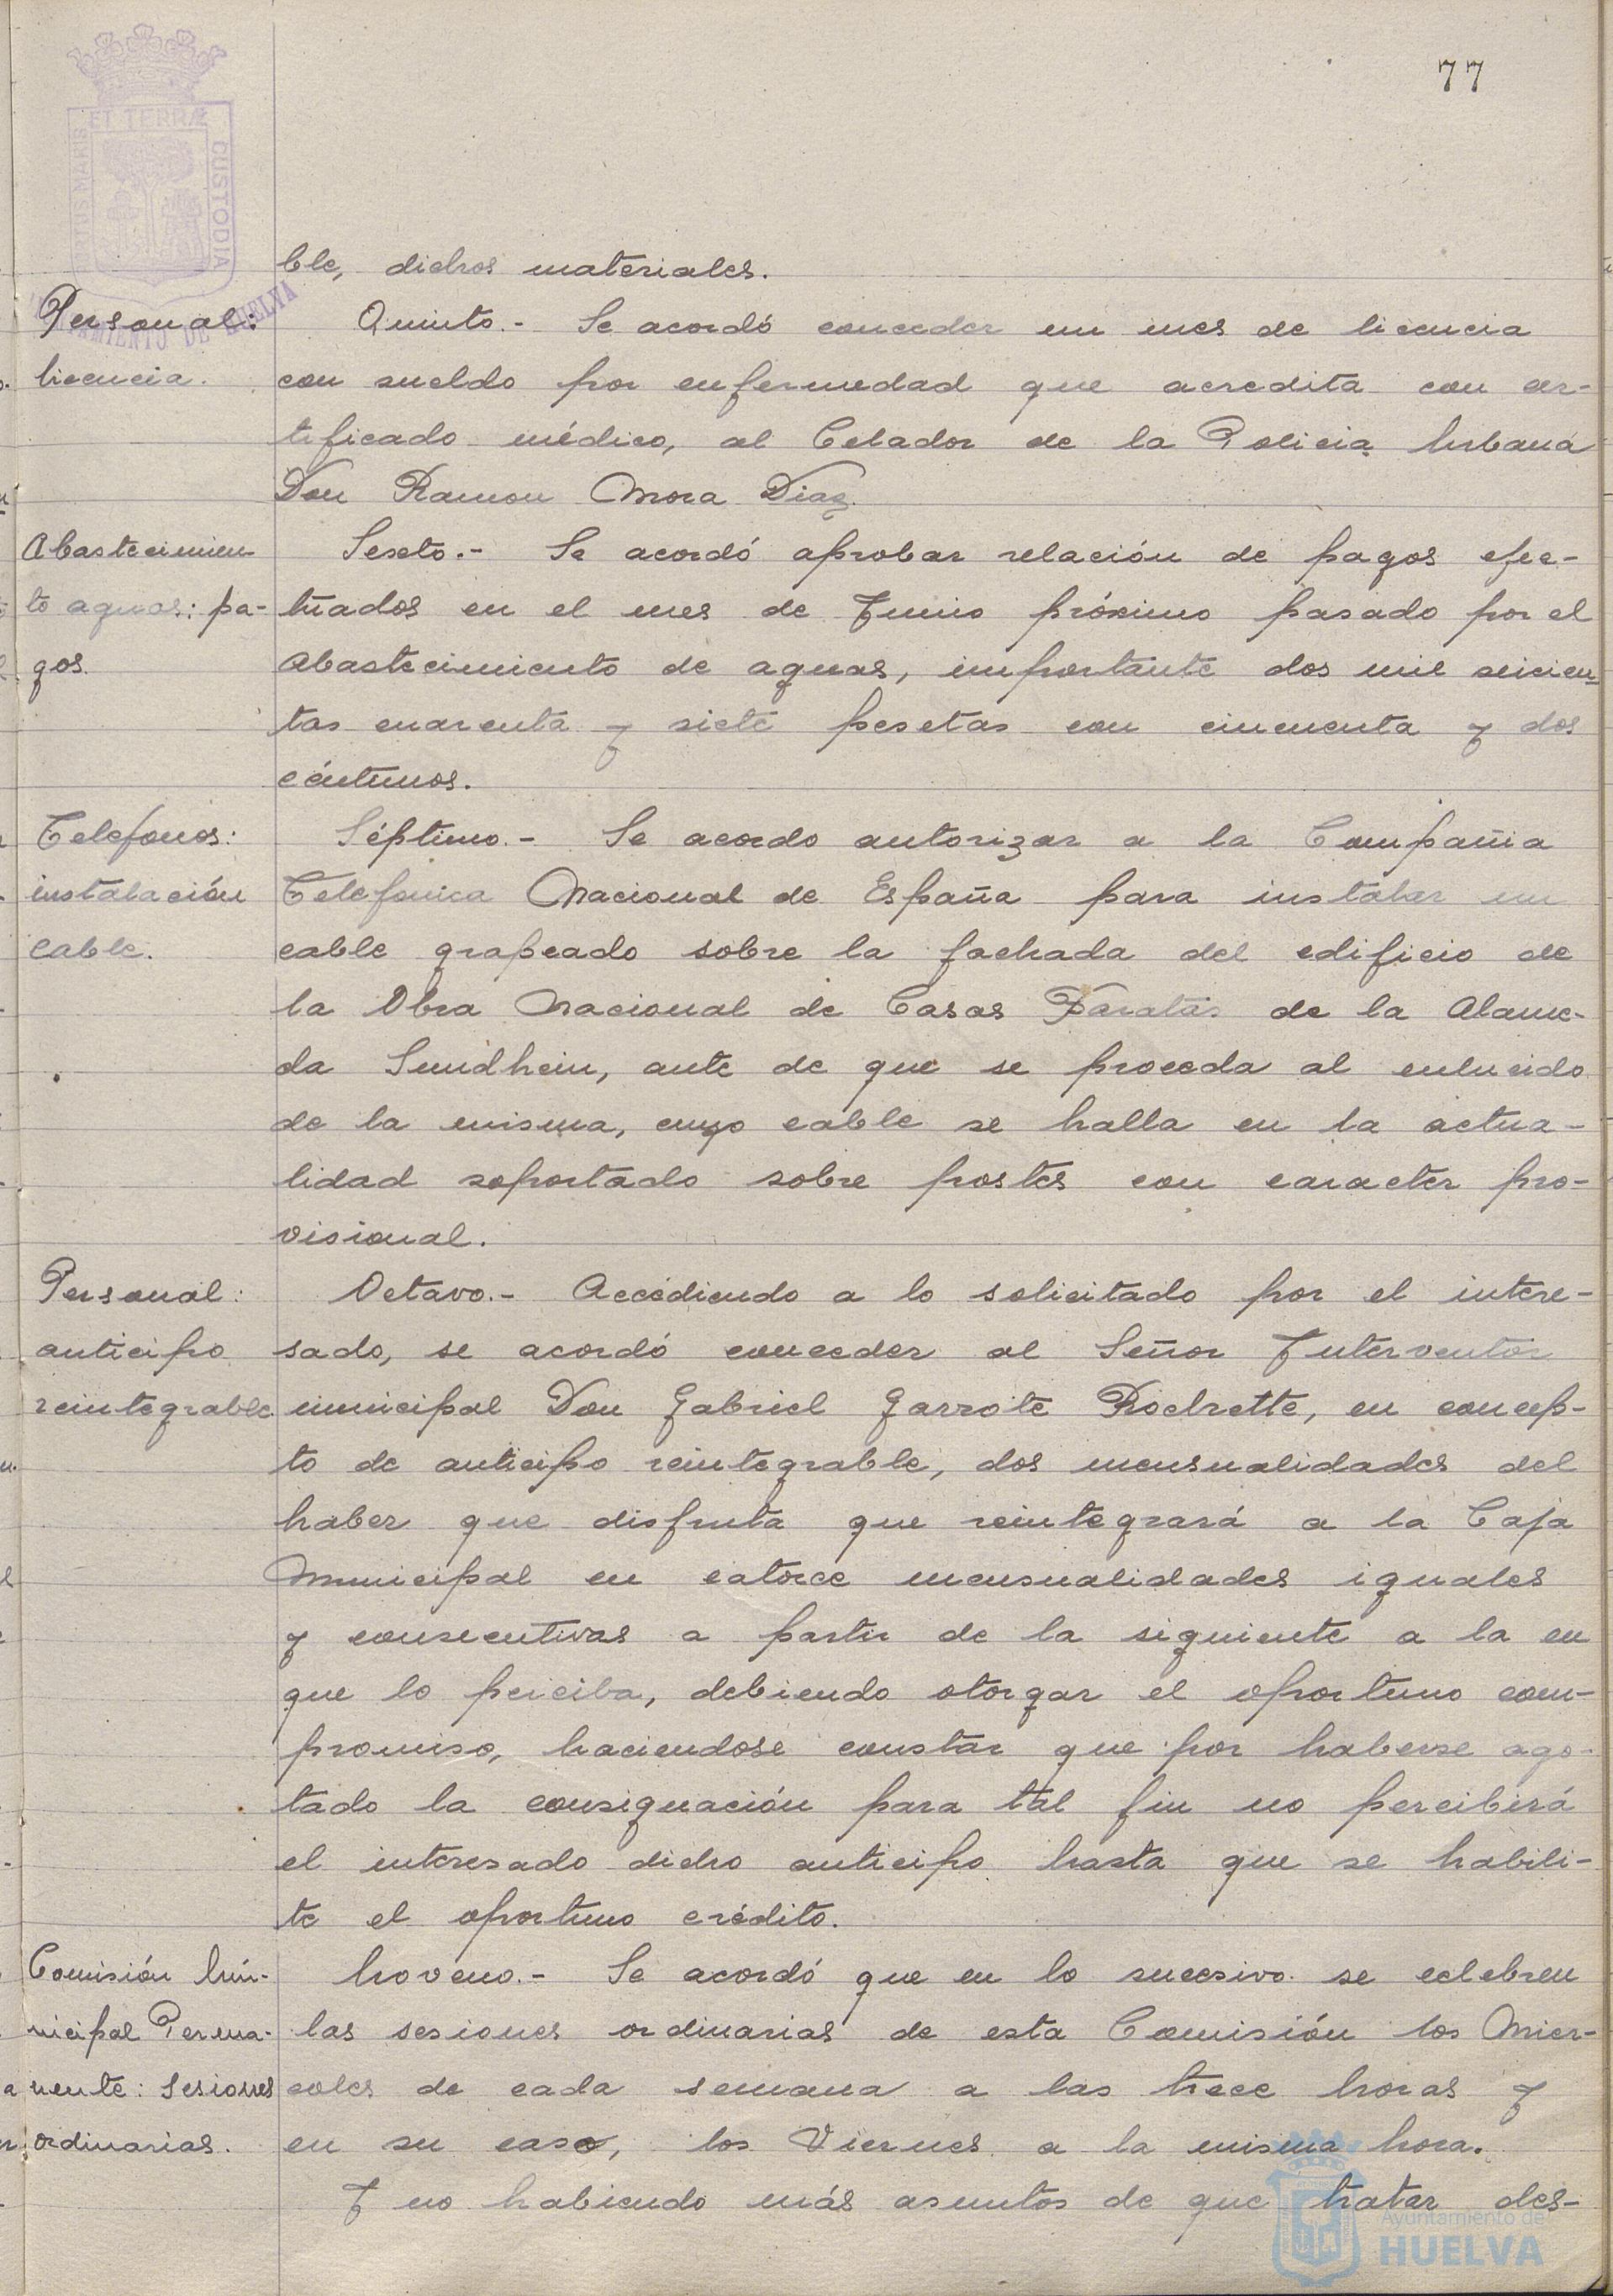 77
PORTUS MARIS
ET TERRÆ
CUSTODIA
AYUNTAMIENTO DE HUELVA
ble, dichos materiales.
Personal:
licencia.
Quinto.- Se acordó conceder un mes de licencia
con sueldo por enfermedad que acredita con cer-
tificado médico, al Celador de la Policia Urbana
Don Ramon Mora Diaz.
Abastecimien
to aguas: pa-
gos.
Sexto.- Se acordó aprobar relación de pagos efec-
tuados en el mes de Junio próximo pasado por el
Abastecimiento de aguas, importante dos mil seicien-
tas cuarenta y siete pesetas con cincuenta y dos
céntimos.
Telefonos:
instalación
cable.
Séptimo.- Se acordo autorizar a la Compañia
Telefonica Nacional de España para instalar un
cable grapeado sobre la fachada del edificio de
la Obra Nacional de Casas Baratas de la Alame-
da Sundhein, ante de que se proceda al enlucido
de la misma, cuyo cable se halla en la actua-
lidad soportado sobre postes con caracter pro-
visional.
Personal:
anticipo
reintegrable.
Octavo.- Accediendo a lo solicitado por el intere-
sado, se acordó conceder al Señor Interventor
municipal Don Gabriel Garrote Rochette, en concep-
to de anticipo reintegrable, dos mensualidades del
haber que disfruta que reintegrará a la Caja
Municipal en catorce mensualidades iguales
y consecutivas a partir de la siguiente a la en
que lo perciba, debiendo otorgar el oportuno com-
promiso, haciendose constar que por haberse ago-
tado la consignación para tal fin no percibirá
el interesado dicho anticipo hasta que se habili-
te el oportuno crédito.
Comisión Mu-
nicipal Perma-
nente: Sesiones
ordinarias.
Noveno.- Se acordó que en lo sucesivo se celebren
las sesiones ordinarias de esta Comisión los Mier-
coles de cada semana a las trece horas y
en su caso, los Viernes a la misma hora.
Y no habiendo más asuntos de que tratar des-
Ayuntamiento de
HUELVA